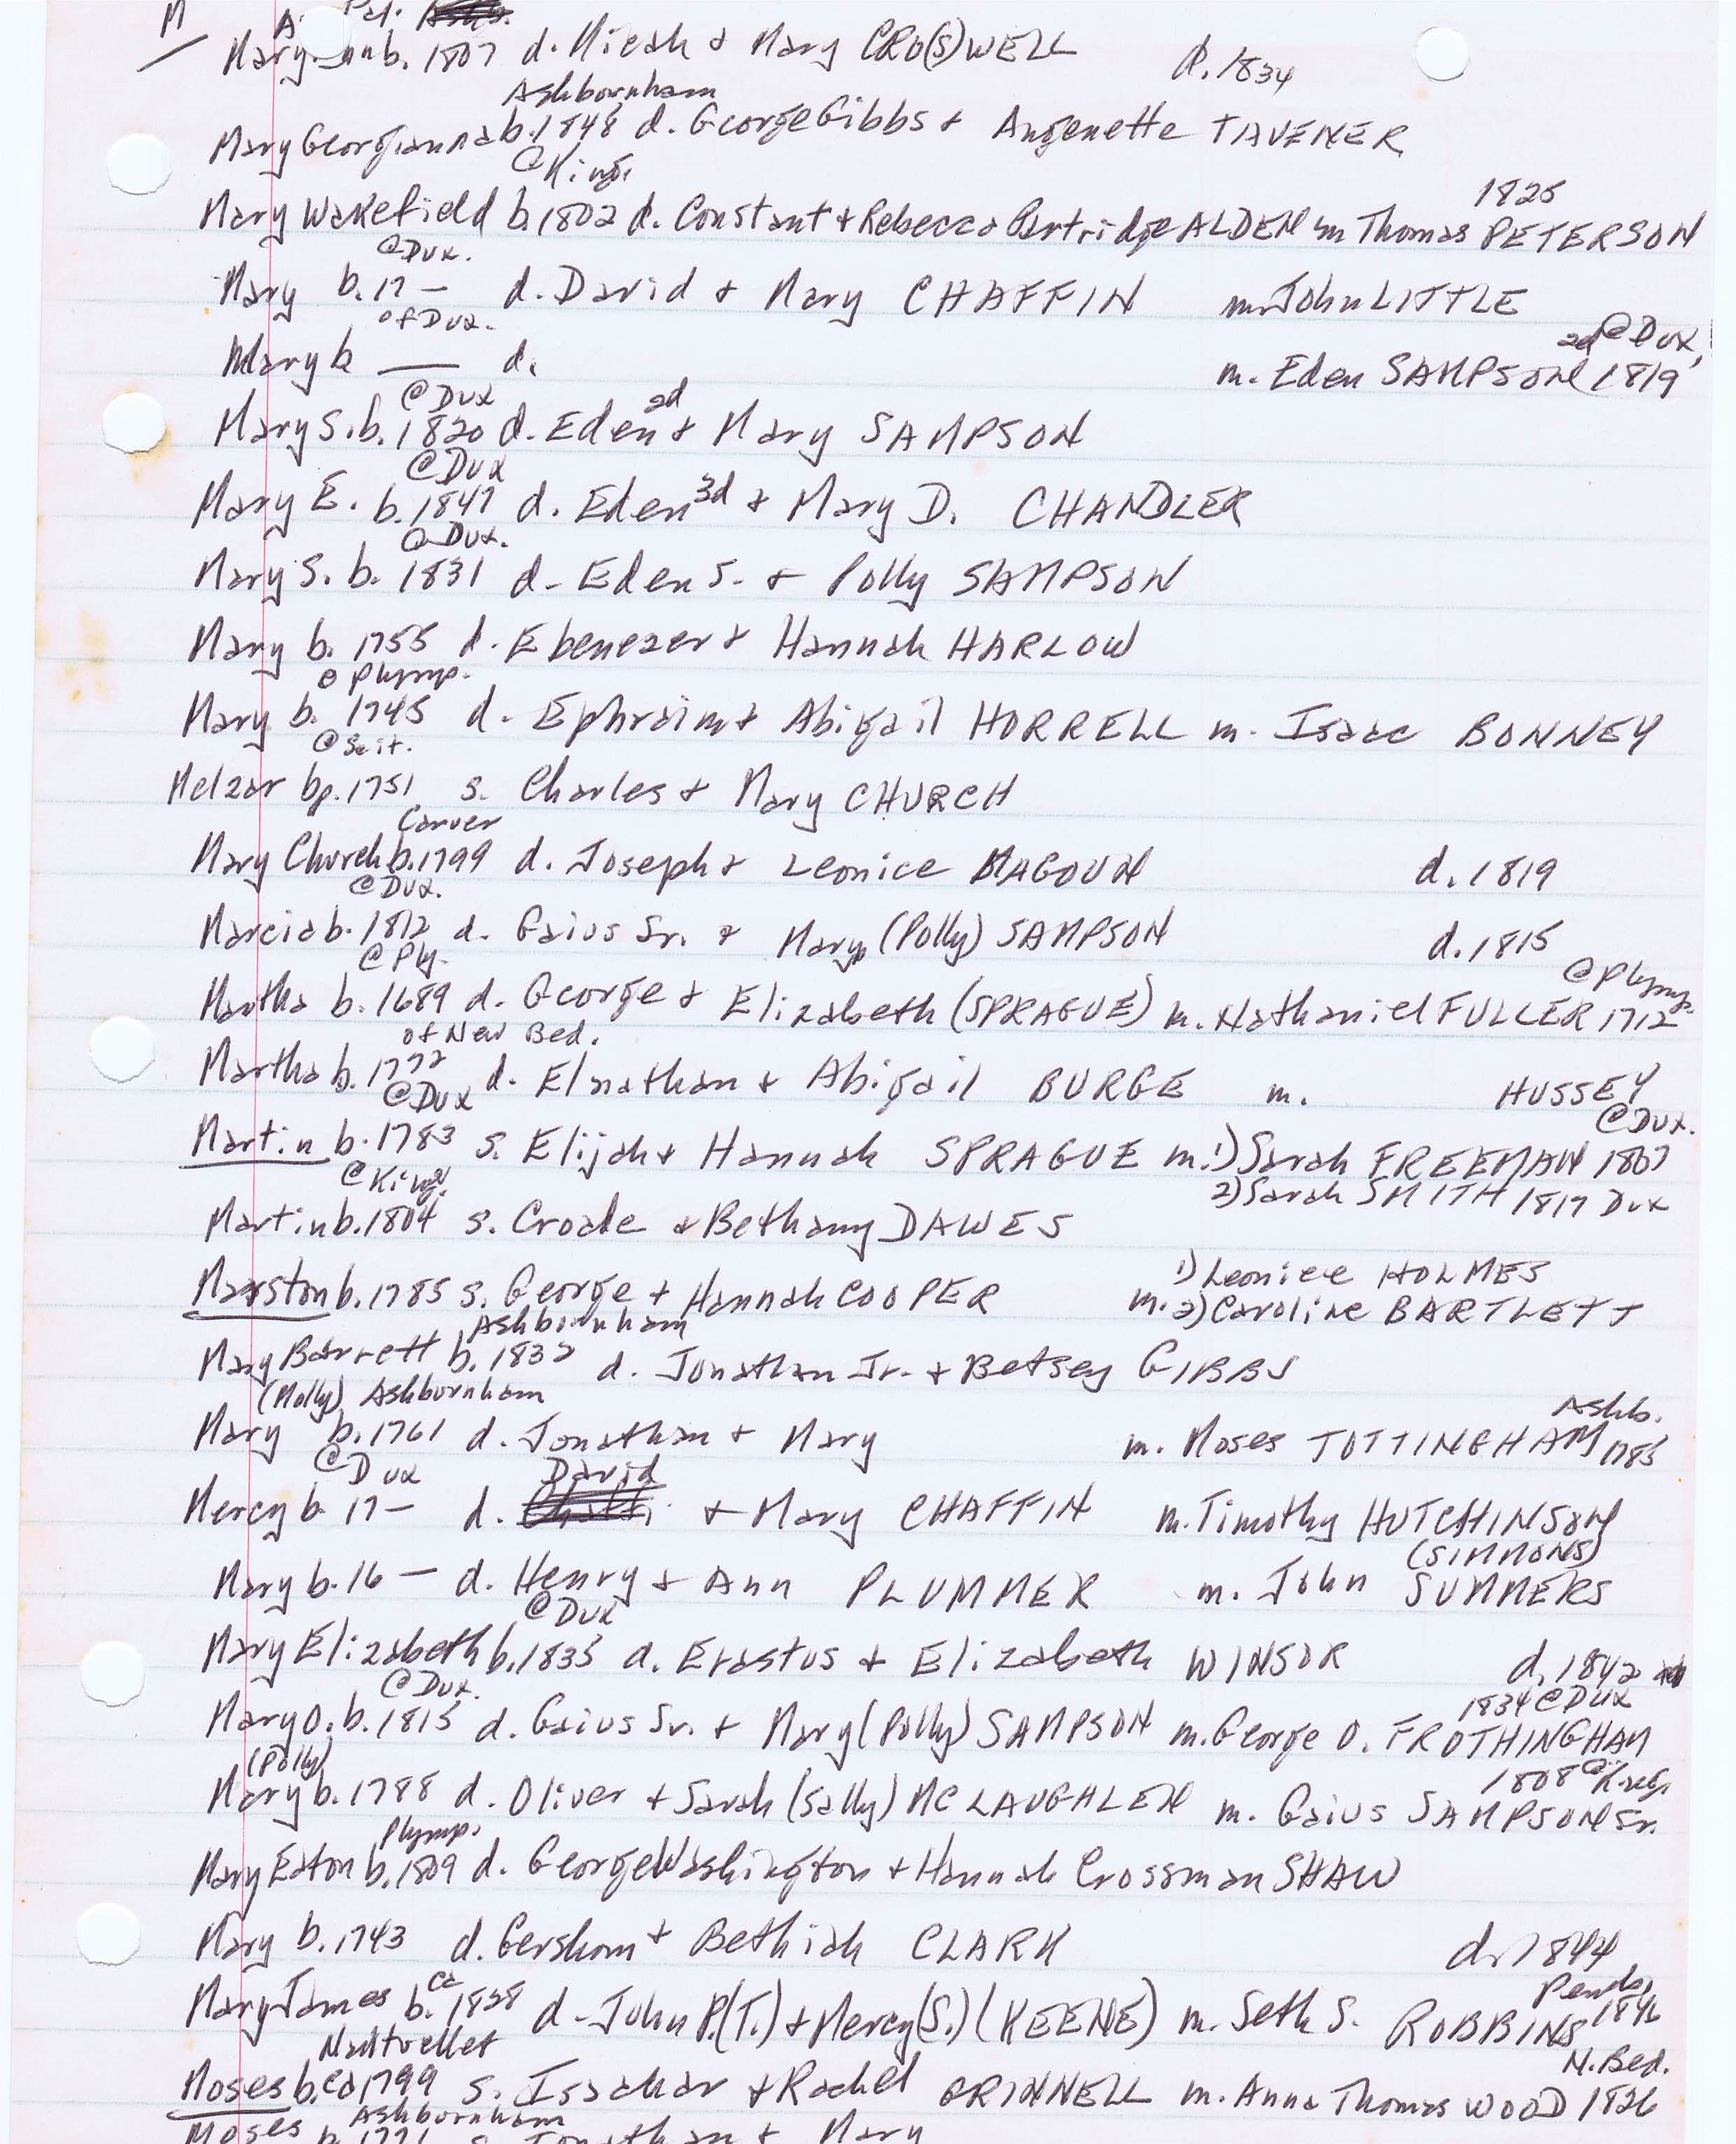 M A Pat.
Mary Ann b. 1807 d. Micah + Mary CRO(S)WELL d. 1834
Ashbornham
Mary Georgianna b. 1848 d. George Gibbs + Angenette TAVENER
@ King.
1825
Mary Wakefield b. 1802 d. Constant + Rebecca Partridge ALDEN m Thomas PETERSON
@Dux.
Mary b. 17— d. David + Mary CHAFFIN m. John LITTLE
of Dux.
2d @Dux.
Mary b —— d. m. Eden SAMPSON 1819
@Dux
Mary S. b. 1820 d. Eden 2d + Mary SAMPSON
@Dux
Mary E. b. 1847 d. Eden 3d + Mary D. CHANDLER
@Dux.
Mary S. b. 1831 d- Eden S. + Polly SAMPSON
Mary b. 1755 d. Ebenezer + Hannah HARLOW
@ Plymp.
Mary b. 1745 d. Ephraim + Abigail HORRELL m. Isaac BONNEY
@Scit.
Melzar bp. 1751 s. Charles + Mary CHURCH
Carver
Mary Church b. 1799 d. Joseph + Leonice MAGOUN d. 1819
@Dux.
Marcia b. 1812 d. Gaius Sr. + Mary (Polly) SAMPSON d. 1815
@Ply.
@Plymp.
Martha b. 1689 d. George + Elizabeth (SPRAGUE) m. Nathaniel FULLER 1712
of New Bed.
Martha b. 1772 d. Elnathan + Abigail BURGE m. HUSSEY
@Dux @Dux.
Martin b. 1783 s. Elijah + Hannah SPRAGUE m. 1) Sarah FREEMAN 1807
@King. 2) Sarah SMITH 1817 Dux
Martin b. 1804 s. Croade + Bethany DAWES
1) Leonice HOLMES
Marston b. 1785 s. George + Hannah COOPER m. 2) Caroline BARTLETT
Ashburnham
Mary Barrett b. 1832 d. Jonathan Jr. + Betsey GIBBS
(Molly) Ashburnham Ashb.
Mary b. 1761 d. Jonathan + Mary m. Moses TOTTINGHAM 1785
@Dux David
Mercy b 17— d. + Mary CHAFFIN m. Timothy HUTCHINSON
(SIMMONS)
Mary b. 16— d. Henry + Ann PLUMMER m. John SUMMERS
@Dux
Mary Elizabeth b. 1835 d. Erastus + Elizabeth WINSOR d. 1842
@Dux. 1834 @Dux
Mary O. b. 1815 d. Gaius Sr. + Mary (Polly) SAMPSON m. George O. FROTHINGHAM
(Polly) 1808 @ King.
Mary b. 1788 d. Oliver + Sarah (Sally) MCLAUGHLEN m. Gaius SAMPSON Sr.
Plymp.
Mary Eaton b. 1809 d. George Washington + Hannah Crossman SHAW
Mary b. 1743 d. Gershom + Bethiah CLARK d. 1844
ca Pemb.
Mary James b. 1828 d- John P. (T.) + Mercy (S.) (KEENE) m. Seth S. ROBBINS 1846
Nantucket N. Bed.
Moses b. ca 1799 s. Issachar + Rachel GRINNELL m. Anna Thomas WOOD 1826
Ashburnham
Moses b. 1771 s. Jonathan + Mary